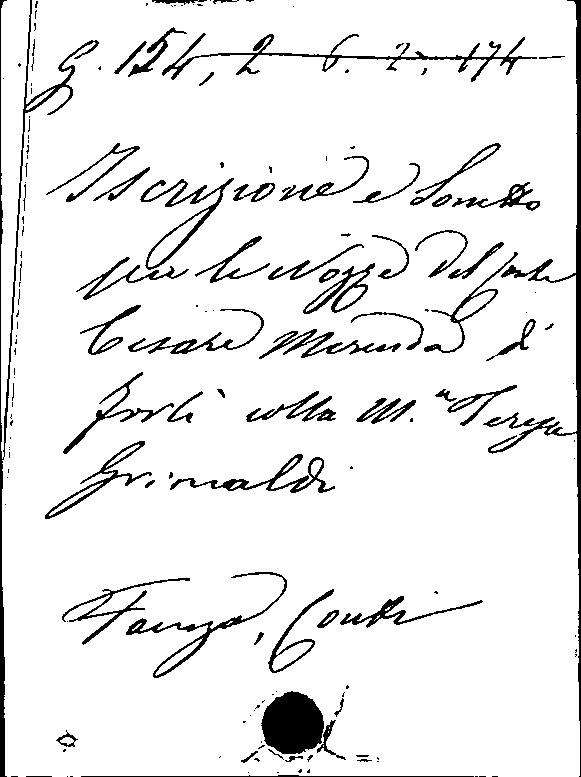 G. 154, 2 6. 2. 174
Iscrizione e Sonetto
per le Nozze del Conte
Cesare Merenda di
Forlì colla M.a Teresa
Grimaldi
Faenza, Conti